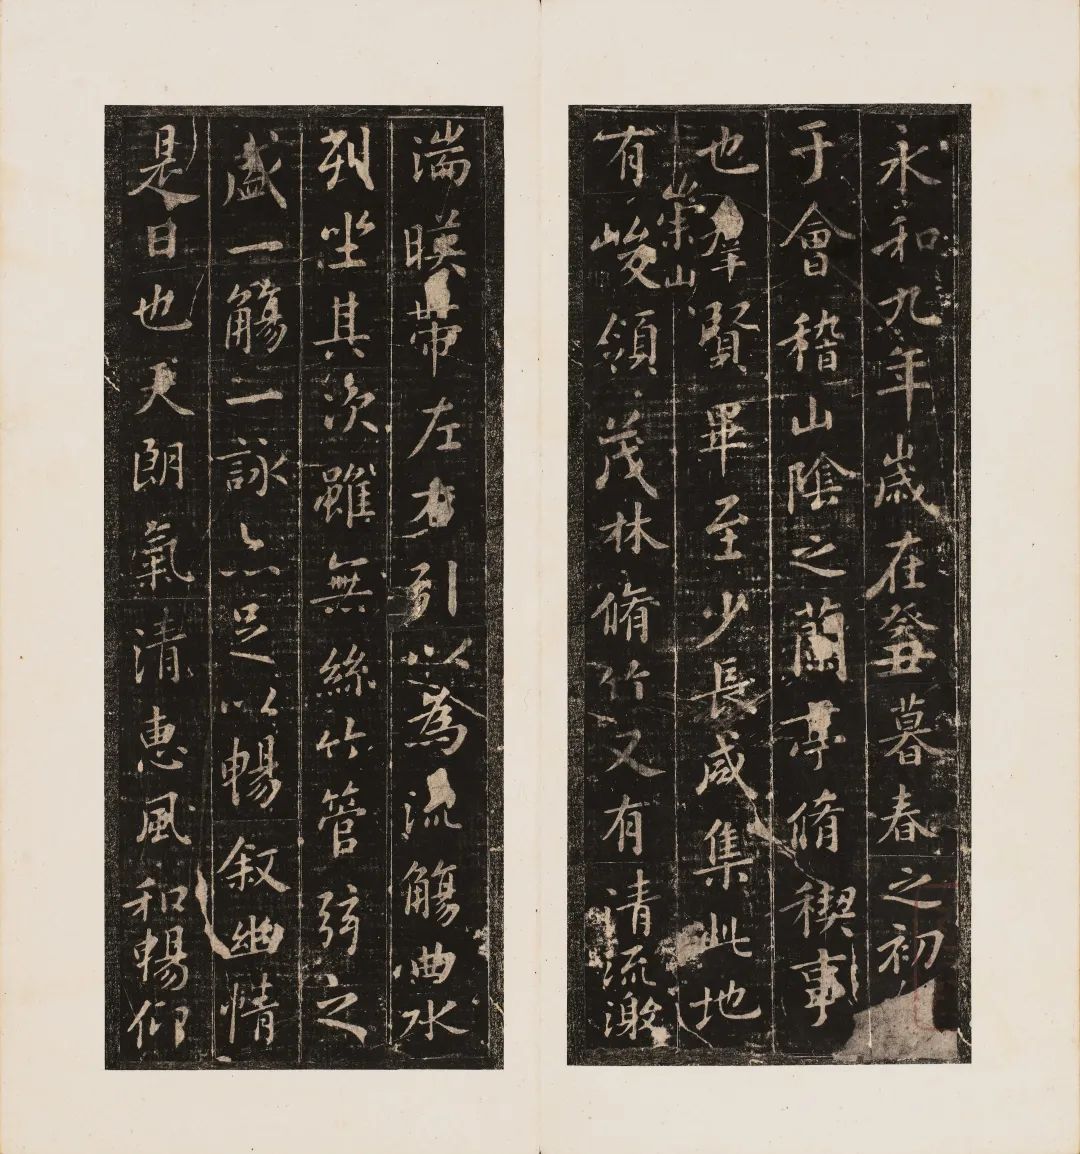 永和九年歲在癸丑暮春之初
于會稽山陰之蘭亭脩禊事
也群賢畢至少長咸集此地
有崇山峻領茂林脩竹又有清流激
湍暎帶左右引以為流觴曲水
列坐其次雖無絲竹管弦之
盛一觴一詠亦足以暢敘幽情
是日也天朗氣清惠風和暢仰